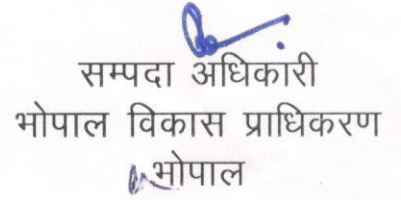 सम्पदा अधिकारी
भोपाल विकास प्राधिकरण
भोपाल